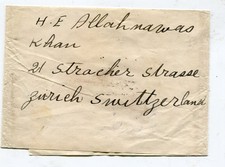 H. E Allahnawas
Khan
21 Stracher Strasse
Zurich Swittzerland